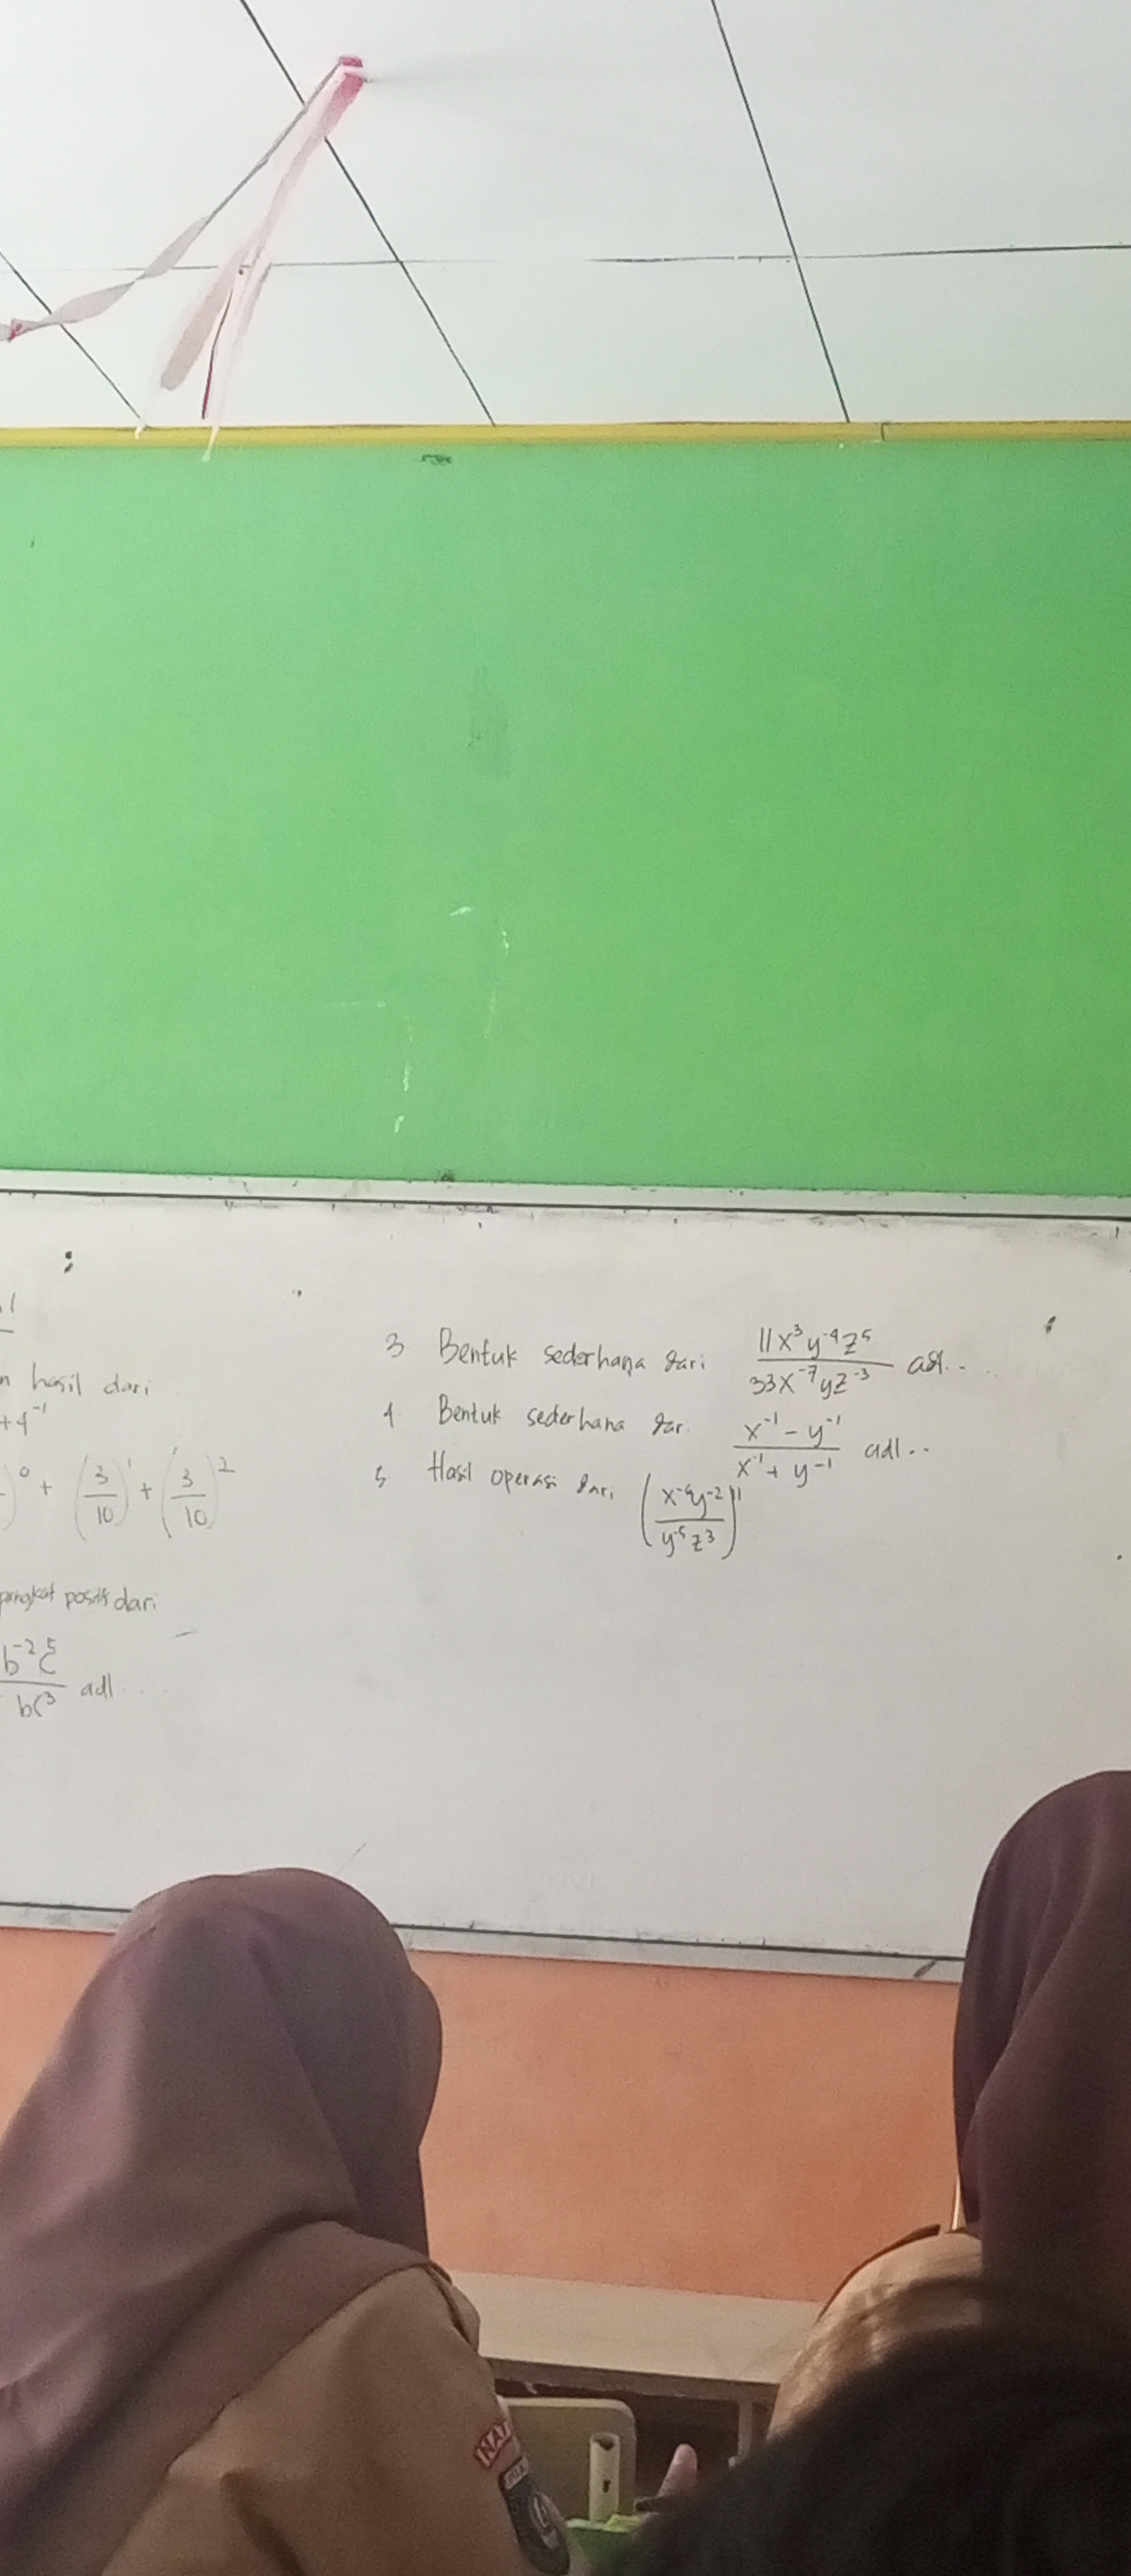 hasil dari
+4⁻¹
)⁰ + (3/10)¹ + (3/10)²
pangkat positif dari
b⁻²c⁵/bc³ adl....
3 Bentuk sederhana dari 11x³y⁻⁴z⁵/33x⁻⁷yz⁻³ adl...
4. Bentuk sederhana dar. x⁻¹ - y⁻¹/x⁻¹ + y⁻¹ adl..
5 Hasil operasi dari